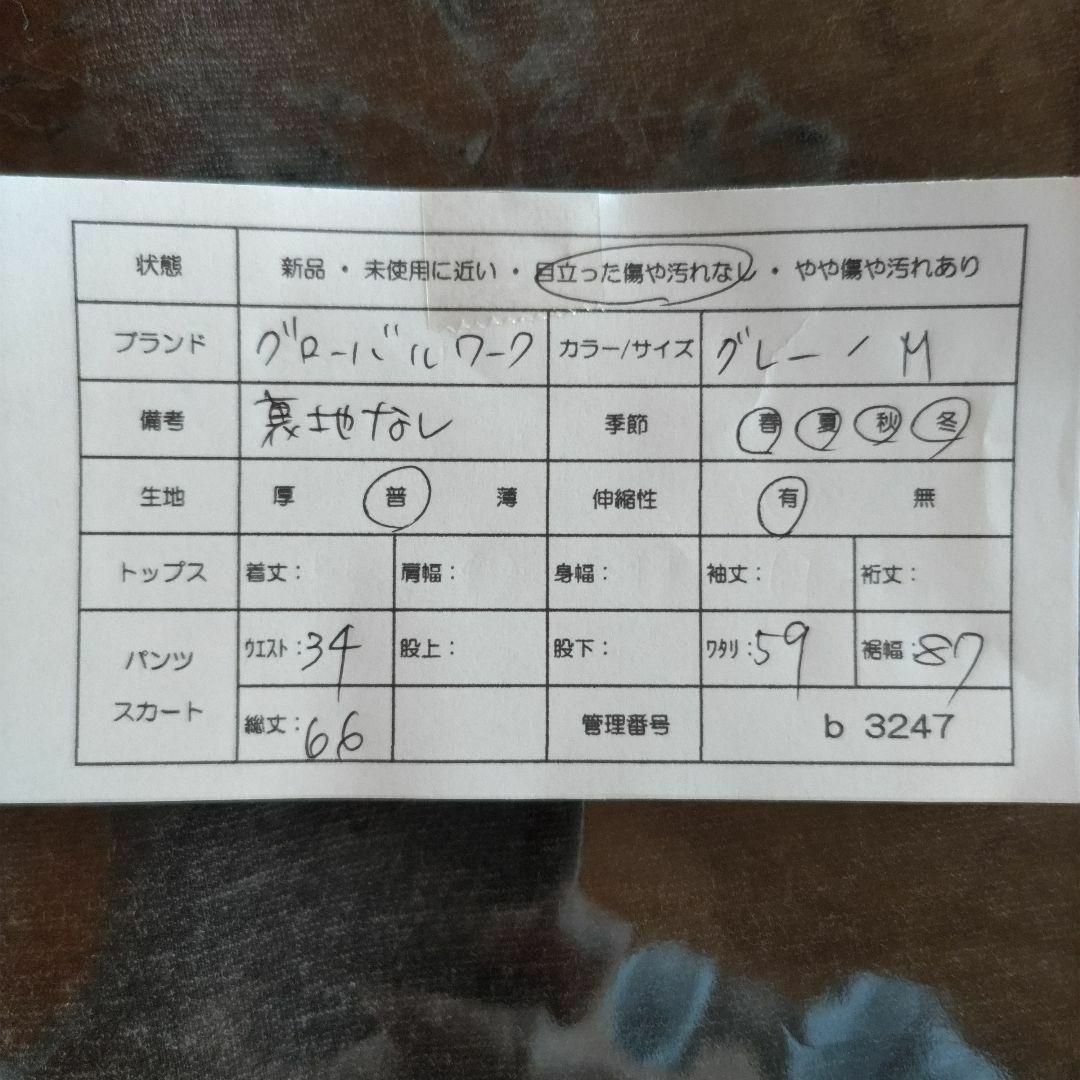 状態 新品・未使用に近い・目立った傷や汚れなし・やや傷や汚れあり
ブランド グローバルワーク カラー/サイズ グレー/M
備考 裏地なし 季節 春 夏 秋 冬
生地 厚 普 薄 伸縮性 有 無
トップス 着丈: 肩幅: 身幅: 袖丈: 裄丈:
パンツ ウエスト:34 股上: 股下: ワタリ:59 裾幅:87
スカート 総丈:66 管理番号 b 3247